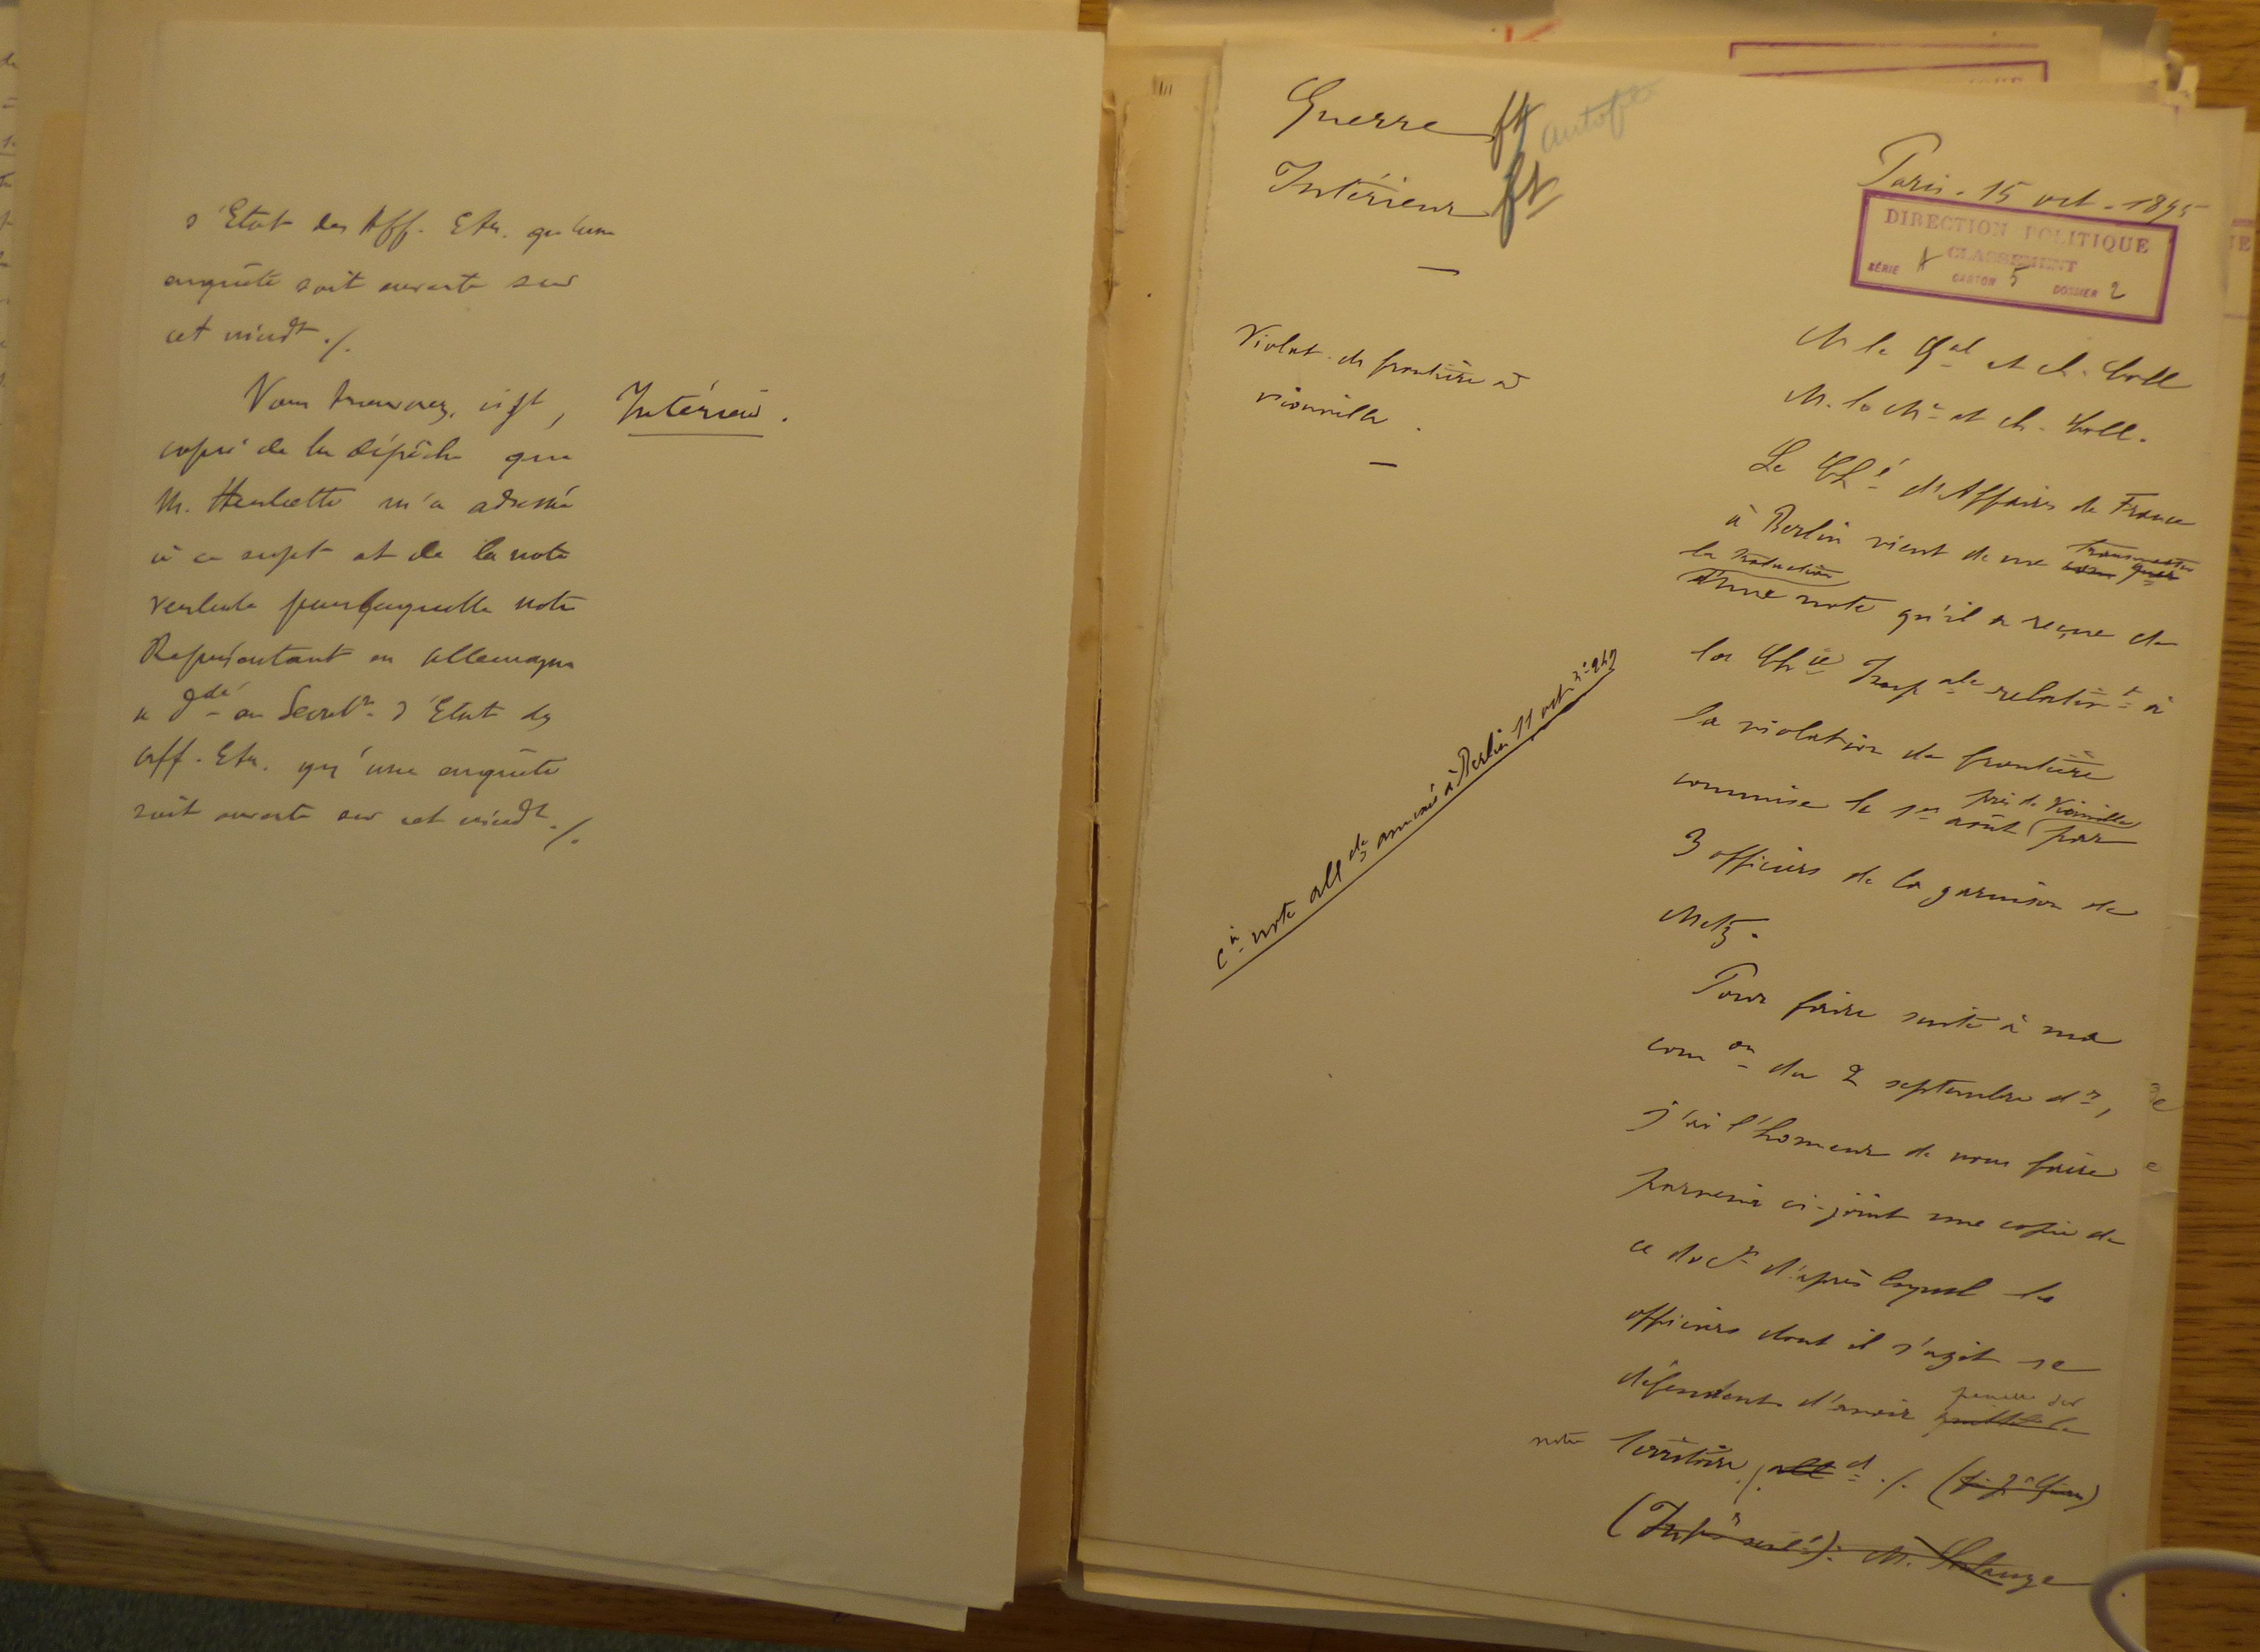 d'Etat des Aff. Etr. qu'une
enquête soit ouverte sur
cet incidt ./.
Vous trouverez, ci jt,
Intérieur.
copie de la dépêche que
M. Herbette m'a adressée
à ce sujet et de la note
verbale par laquelle notre
Représentant en Allemagne
a ddé au Secretre d'Etat des
Aff. Etr. qu'une enquête
soit ouverte sur cet incidt ./.
Guerre ft
Intérieur ft
Paris. 15 oct. 1895
DIRECTION POLITIQUE
CLASSEMENT
SÉRIE A CARTON 5 DOSSIER 2
Violat. de frontière à
Vionville.
M. le Gal et ch. Coll
M. le Me et ch. Coll.
Le Ché d'Affaires de France
à Berlin vient de me transmettre
la traduction
d'une note qu'il a reçue de
la Chie Impale relativt à
la violation de frontière
commise le 1er août près de Vionville par
3 officiers de la garnison de
Metz.
Cn note allde annexée à Berlin 11 oct. n: 247
Pour faire suite à ma
comon du 2 septembre dr,
j'ai l'honneur de vous faire
parvenir ci-joint une copie de
ce doct d'après lequel les
officiers dont il s'agit se
défendent d'avoir pénétré sur
notre territoire ./. alld ./.